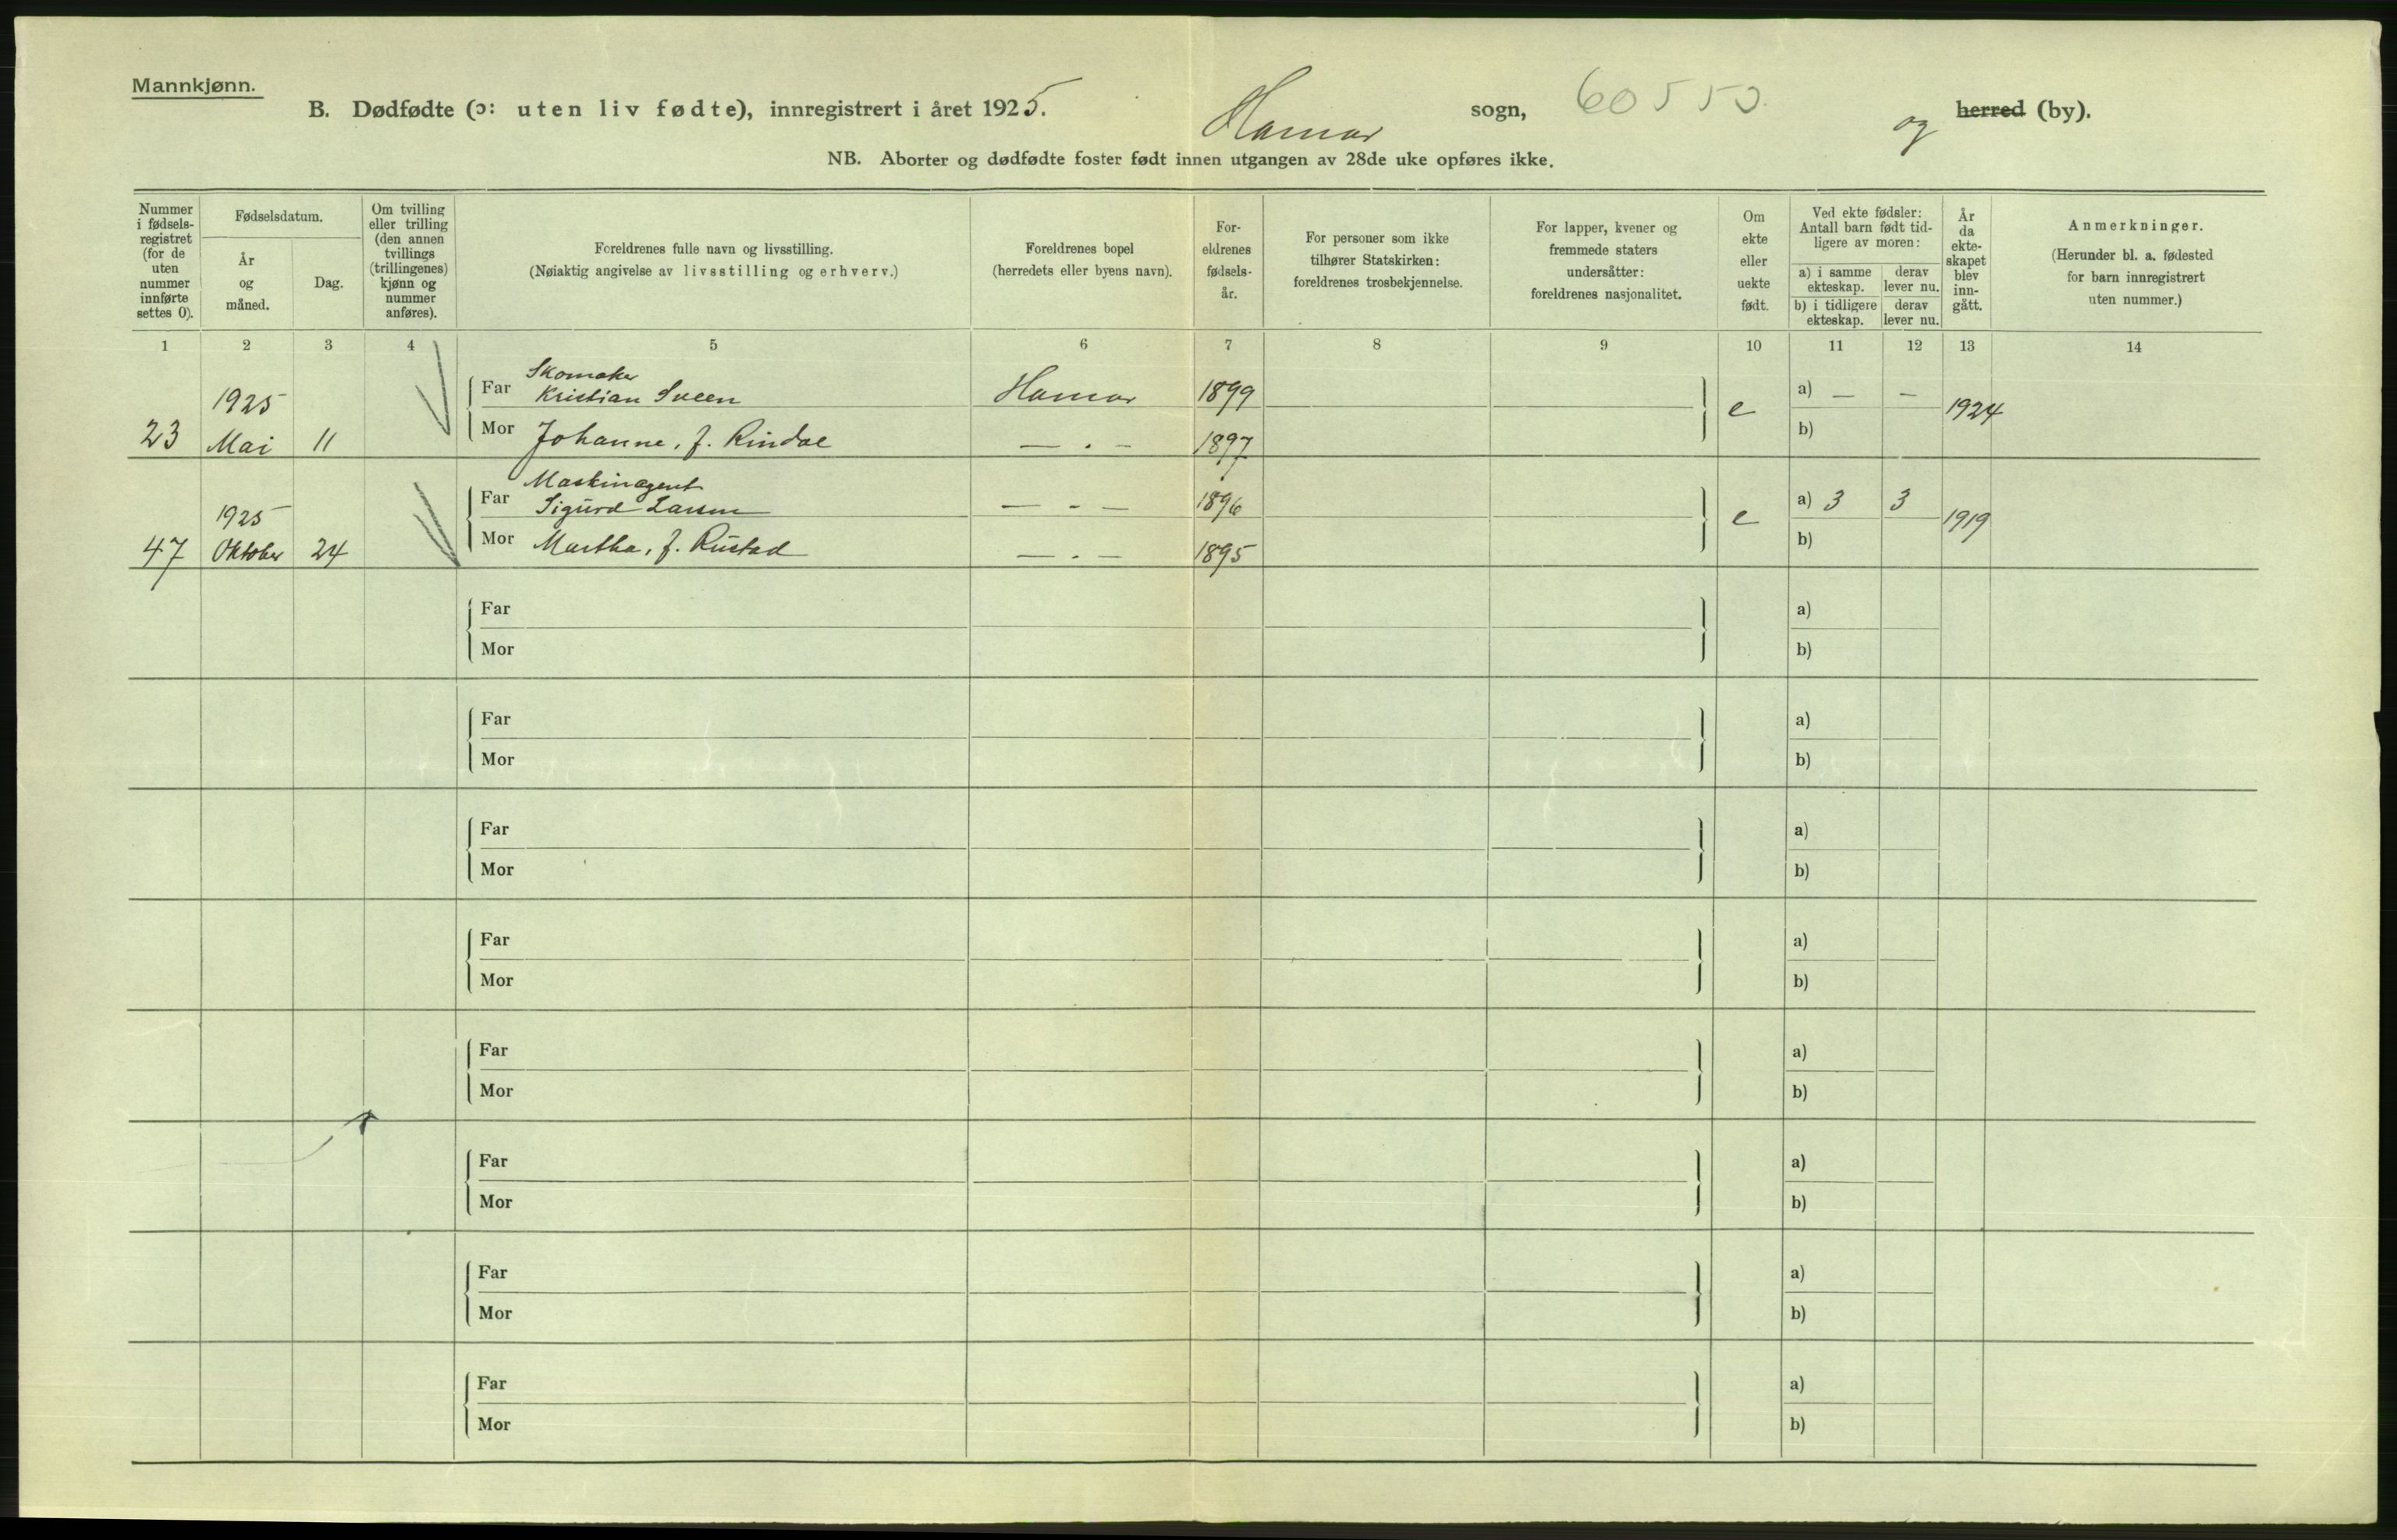 Mannkjønn.
B. Dødfødte (ɔ: uten liv fødte), innregistrert i året 1925. Hamar sogn, 60550. og herred (by).
NB. Aborter og dødfødte foster født innen utgangen av 28de uke opføres ikke.
Nummer i fødselsregistret (for de uten nummer innførte settes 0).
Fødselsdatum.
År og måned.
Dag.
Om tvilling eller trilling (den annen tvillings (trillingenes) kjønn og nummer anføres).
Foreldrenes fulle navn og livsstilling.
(Nøiaktig angivelse av livsstilling og erhverv.)
Foreldrenes bopel
(herredets eller byens navn).
Foreldrenes fødselsår.
For personer som ikke tilhører Statskirken: foreldrenes trosbekjennelse.
For lapper, kvener og fremmede staters undersåtter: foreldrenes nasjonalitet.
Om ekte eller uekte født.
Ved ekte fødsler: Antall barn født tidligere av moren:
a) i samme ekteskap. derav lever nu.
b) i tidligere ekteskap. derav lever nu.
År da ekteskapet blev inngått.
Anmerkninger.
(Herunder bl. a. fødested for barn innregistrert uten nummer.)
1 2 3 4 5 6 7 8 9 10 11 12 13 14
Skomaker
1925 Far Kristian Sveen Hamar 1899 e a) — — 1924
23 Mai 11 Mor Johanne, f. Rindal — . — 1897 b)
Maskinagent
1925 Far Sigurd Larsen — - — 1896 e a) 3 3 1919
47 Oktober 24 Mor Martha, f. Rustad — . — 1895 b)
Far a)
Mor b)
Far a)
Mor b)
Far a)
Mor b)
Far a)
Mor b)
Far a)
Mor b)
Far a)
Mor b)
Far a)
Mor b)
Far a)
Mor b)